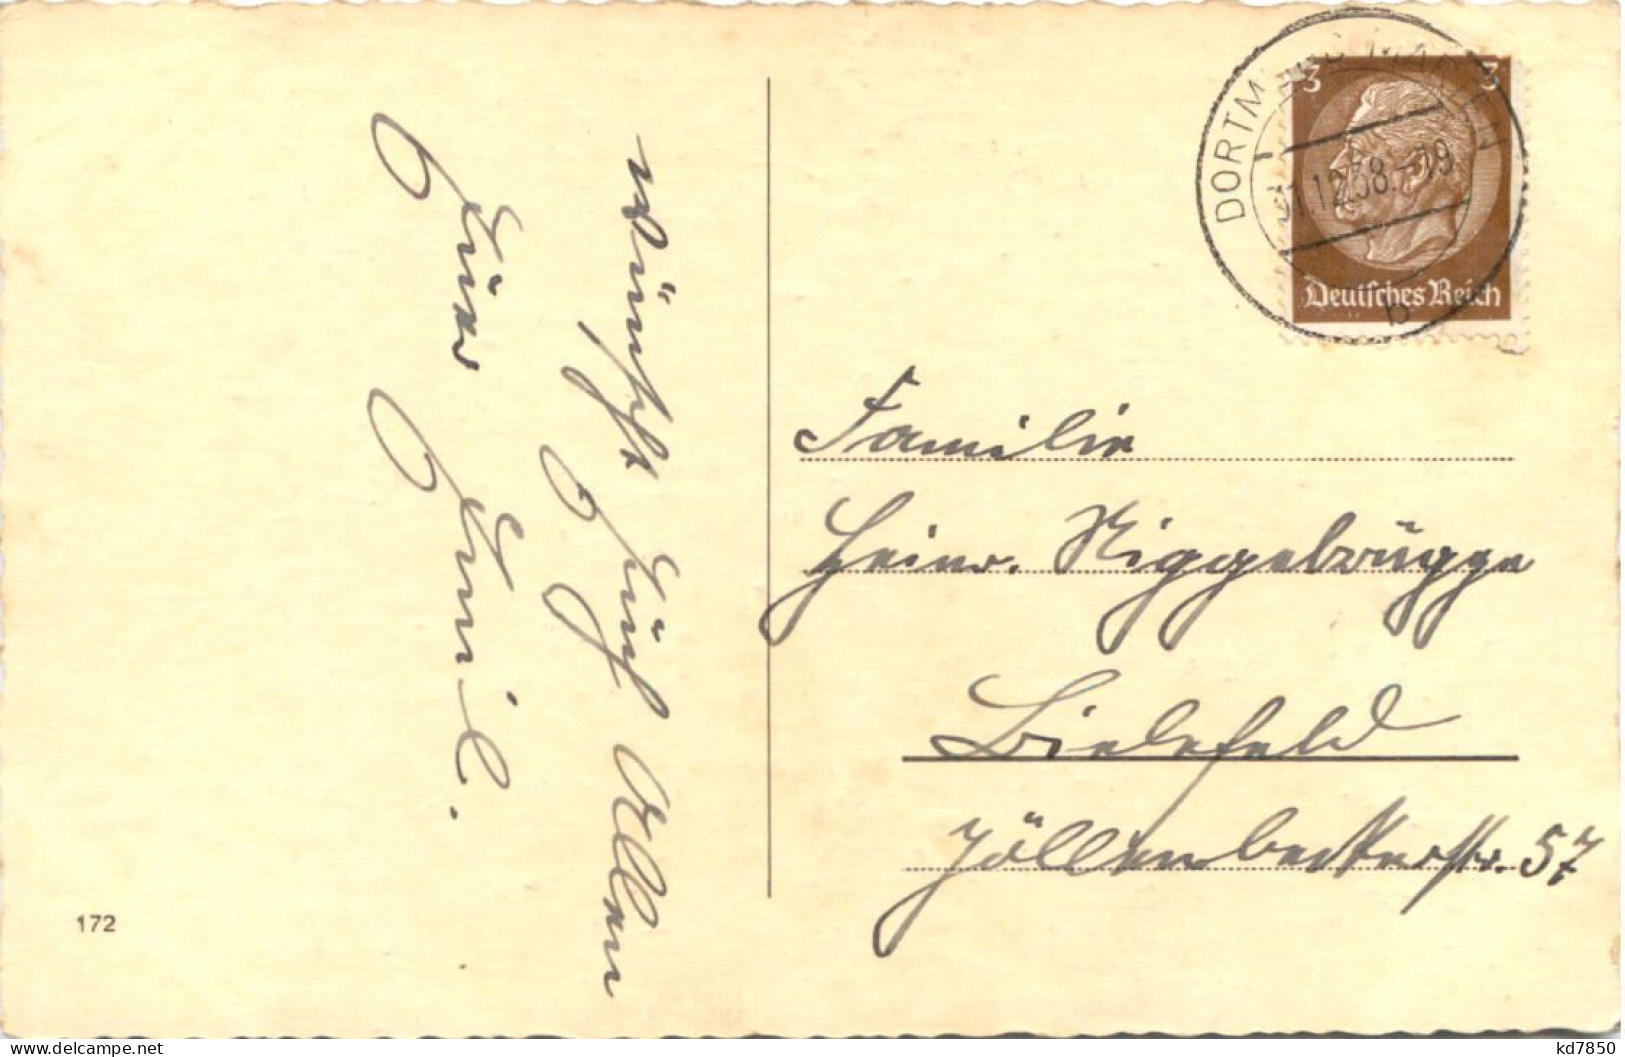 wünscht Euch Allen
Euer Emil.
DORTMUND MARTEN
31.12.38.-19
b
3 3
Deutsches Reich
Familie
Heinr. Niggebrügge
Bielefeld
Jöllenbeckerstr. 57
172
www.delcampe.net
kd7850